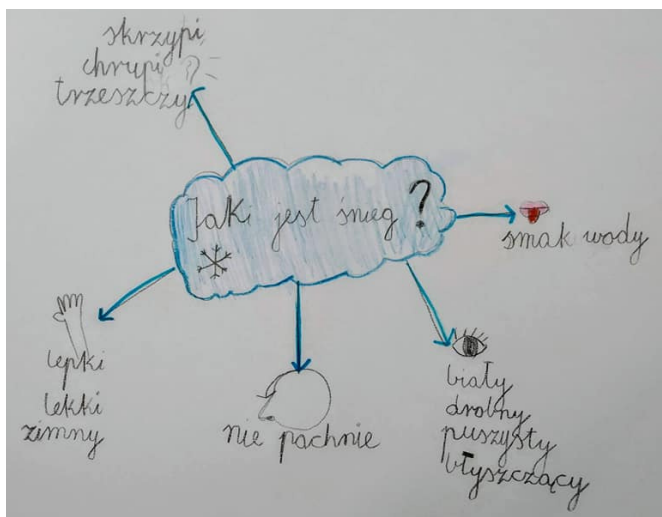 skrzypi
chrupi
trzeszczy
Jaki jest śnieg?
smak wody
lepki
lekki
zimny
nie pachnie
biały
drobny
puszysty
błyszczący